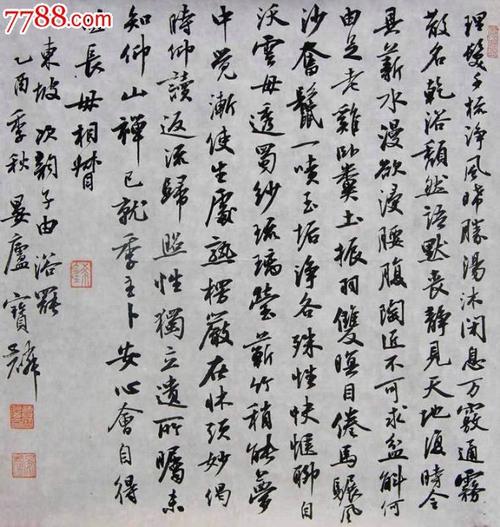 7788.com
理髮千梳淨風晞勝湯沐閑息万竅通霧
散名乾浴頹然語默喪靜見天地復時令
具薪水漫欲浸腰腹陶匠不可求盆斛何
由足老雞卧糞土振羽雙暝目倦馬驏風
沙奮鬣一噴玉垢淨各殊性快愜聊自
沃雲母透蜀紗琉璃瑩蘄竹稍能夢
中覺漸使生處熟楞嚴在床頭妙偈
時仰讀返流歸照性獨立遺所矚未
知仰山禪已就季主卜安心會自得
長毋相督
東坡次韵子由浴罷
乙酉季秋廬寶麟